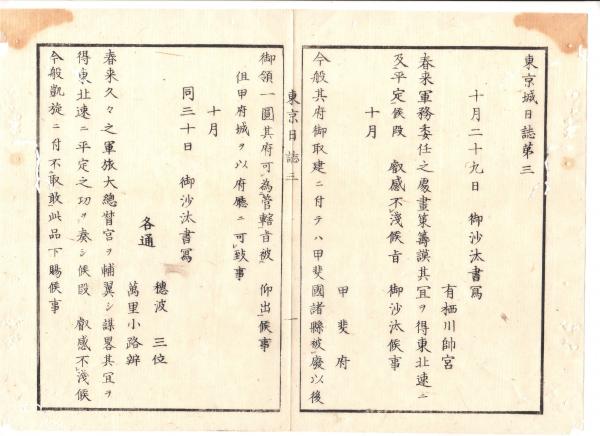 東京城日誌第三
十月二十九日　御沙汰書寫
有栖川帥宮
春来軍務委任之處畫策籌謨其冝ヲ得東北速ニ
及平定候段　叡感不淺候旨　御沙汰候事
十月
甲斐府
今般其府御取建ニ付テハ甲斐國諸縣被廢以後
東京日誌三　一
御領一圓其府可為管轄旨被　仰出候事
但甲府城ヲ以府廳ニ可致事
十月
同三十日　御沙汰書寫
穗波　三位
萬里小路辨
各通
春来久々之軍旅大總督宮ヲ輔翼シ謀畧其冝ヲ
得東北速ニ平定之功ヲ奏シ候段　叡感不淺候
今般凱旋ニ付不取敢此品下賜候事